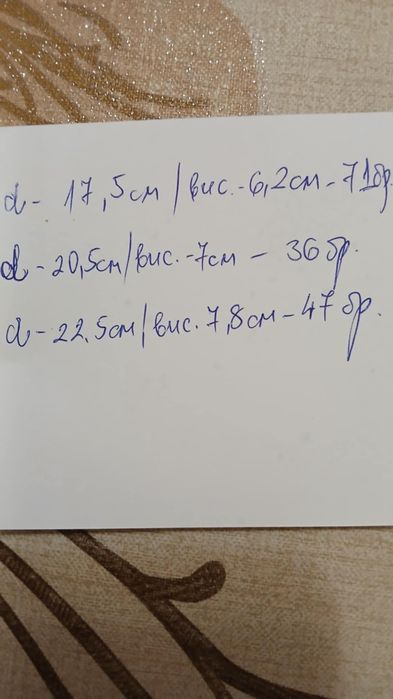 d - 17,5см / вис. - 6,2см - 71бр.
d - 20,5см / вис. - 7см - 36 бр.
d - 22.5см / вис. 7,8см - 47 бр.